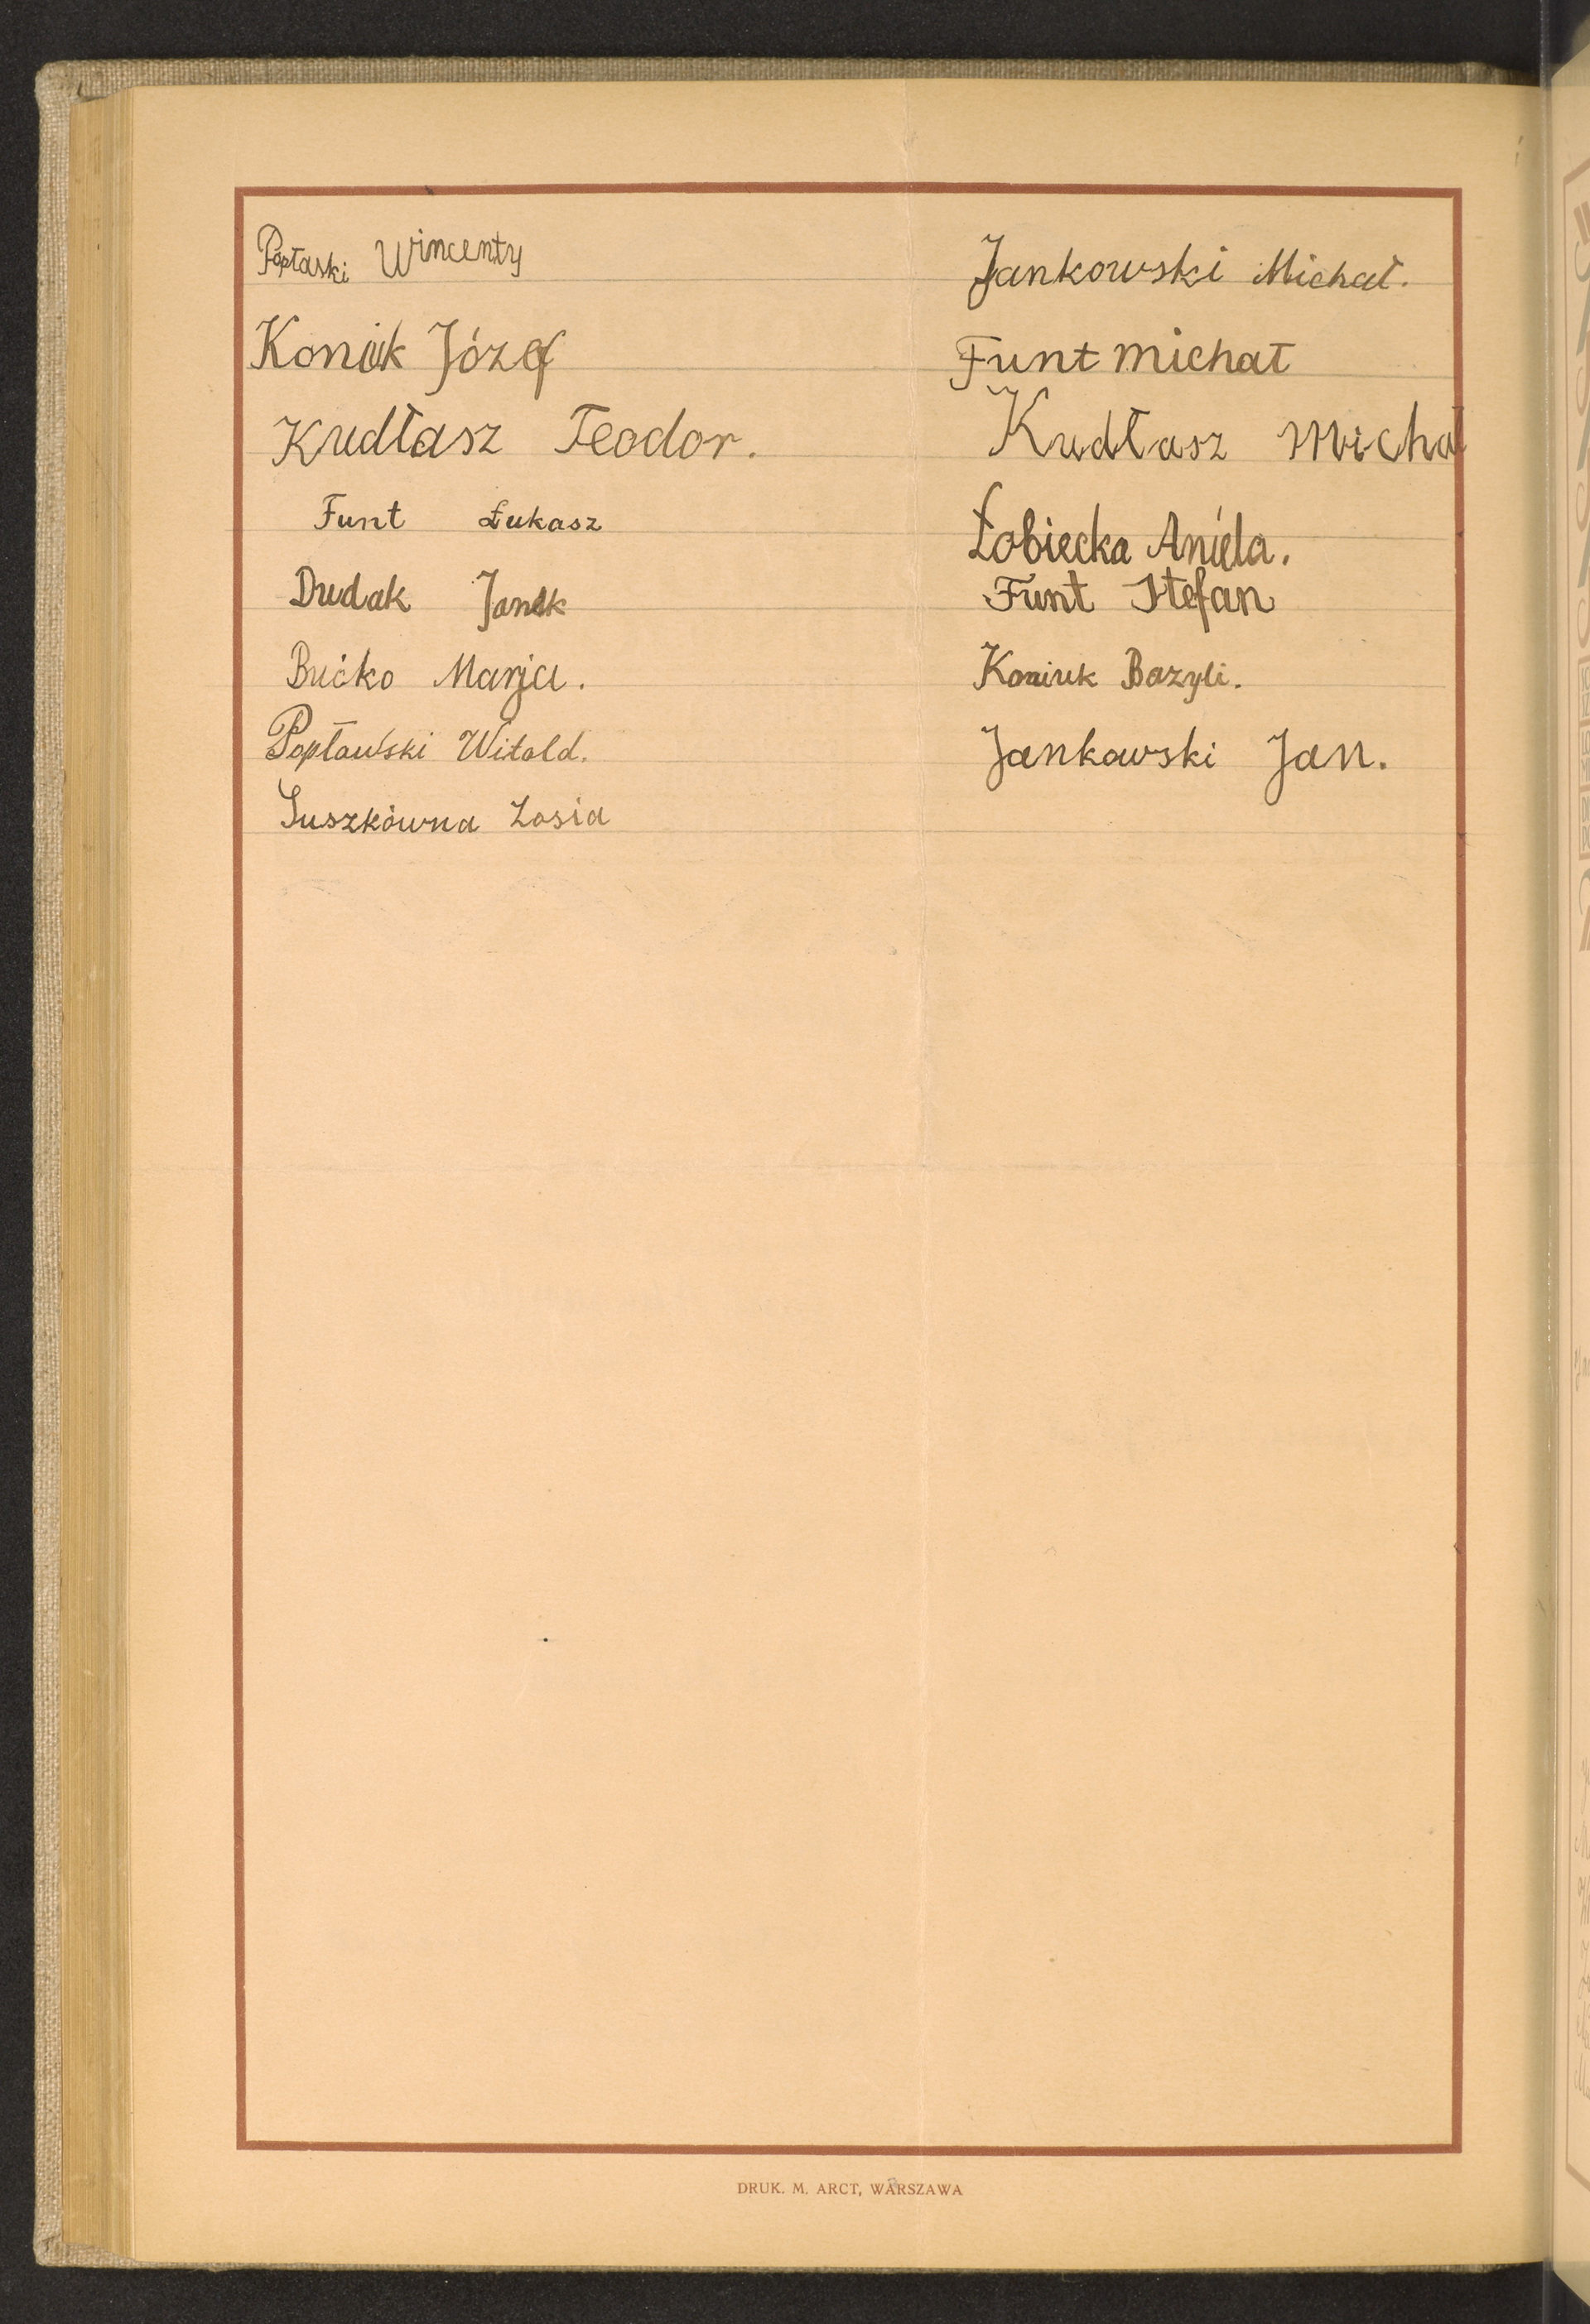 Popłaski Wincenty
Koniuk Józef
Kudłasz Teodor.
Funt Łukasz
Dudak Janek
Bućko Marja.
Popławski Witold.
Suszkówna Zosia
Jankowski Michał.
Funt Michał
Kudłasz Michał
Łobiecka Aniela.
Funt Stefan
Koniuk Bazyli.
Jankowski Jan.
DRUK. M. ARCT, WARSZAWA